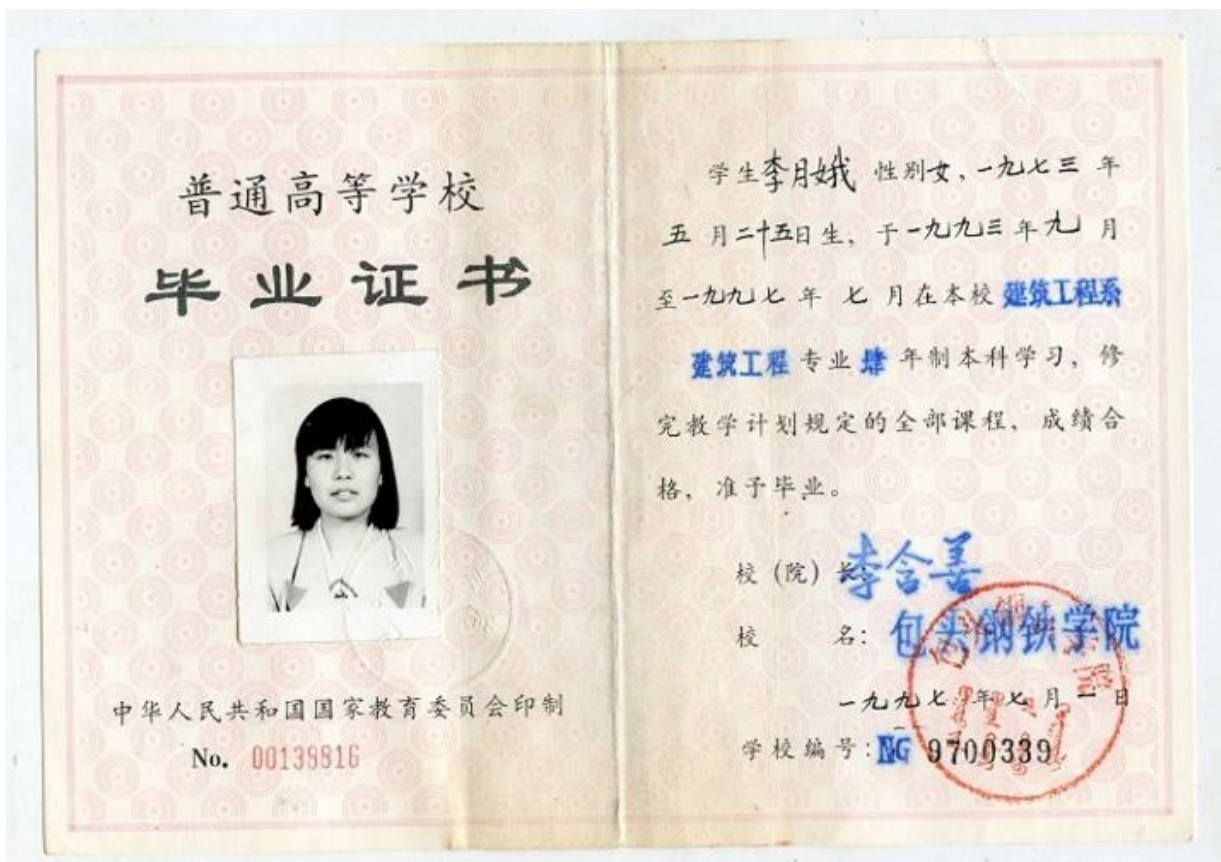 普通高等学校
毕业证书
中华人民共和国国家教育委员会印制
No. 00139816
学生李月娥 性别女，一九七三 年
五 月二十五日生，于一九九三年九 月
至一九九七 年 七 月在本校 建筑工程系
建筑工程 专业 肆 年制本科学习，修
完教学计划规定的全部课程，成绩合
格，准予毕业。
校（院）长：李含善
校 名：包头钢铁学院
一九九七 年七 月 一 日
学校编号：NG 9700339